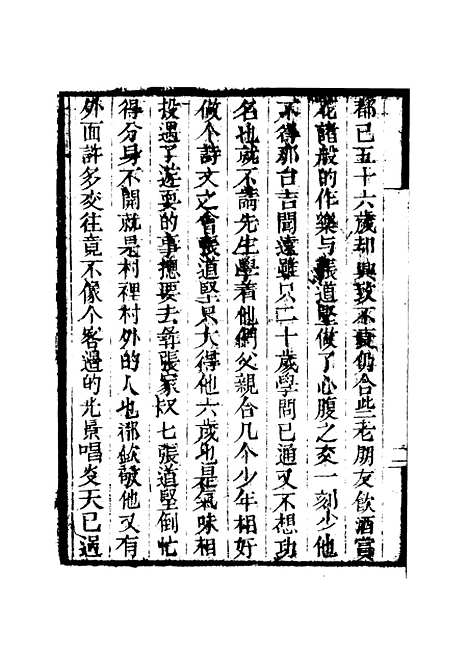 都已五十六歲却興致不衰仍合些老朋友飲酒賞
花諸般的作樂与張道堅做了心腹之交一刻少他
不得那台吉聞遠雖只二十歲學問已通又不想功
名也就不請先生學着他們父親合几个少年相好
做个詩文之會張道堅只大得他六歲也是氣味相
投遇了遊耍的事揔要去尋張家叔七張道堅倒忙
得分身不開就是村裡村外的人也都欽敬他又有
外面許多交往竟不像个客邊的光景唱炎天已過